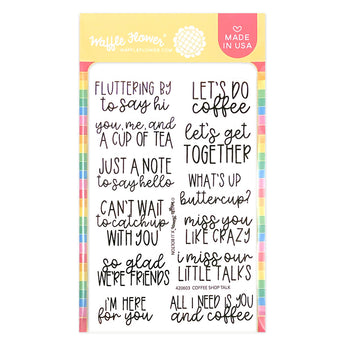 Waffle Flower
WAFFLEFLOWER.COM
MADE
IN USA
FLUTTERING BY
to say hi
you, me, and
A CUP OF TEA
JUST A NOTE
to say hello
CAN'T WAIT
to catch up
WITH YOU
so glad
WE'RE FRIENDS
I'M HERE
for you
LET'S DO
coffee
let's get
TOGETHER
WHAT'S UP
buttercup?
miss you
LIKE CRAZY
i miss our
LITTLE TALKS
420603 COFFEE SHOP TALK
ALL I NEED IS YOU
and coffee